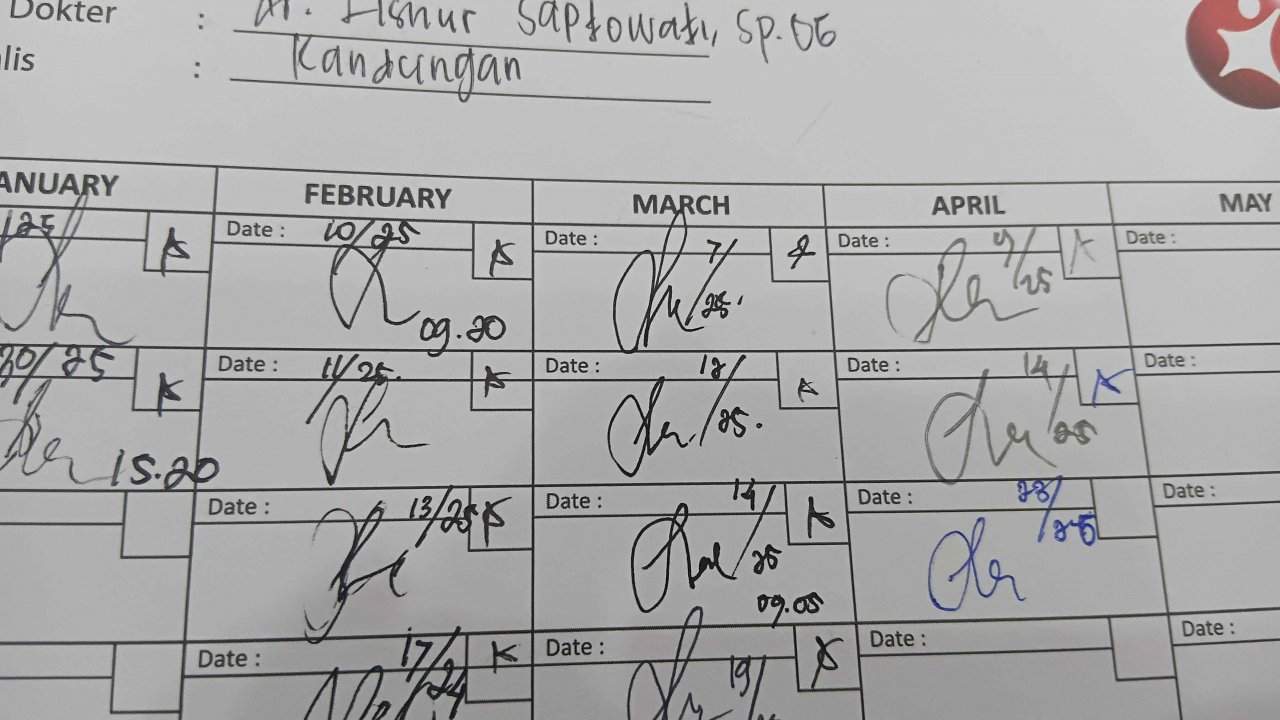 Dokter : dr. Lisnur Saptowati, Sp.OG
lis : Kandungan
ANUARY FEBRUARY MARCH APRIL MAY
/25 A Date : 10/25 A Date : 7/25. Date : 9/25 A Date :
09.20
30/25 A Date : 11/25. A Date : 12/25. A Date : 14/25 A Date :
15.20
Date : 13/25 A Date : 14/25 A Date : 23/25 Date :
09.05
Date : 17/24 A Date : 19/ A Date : Date :